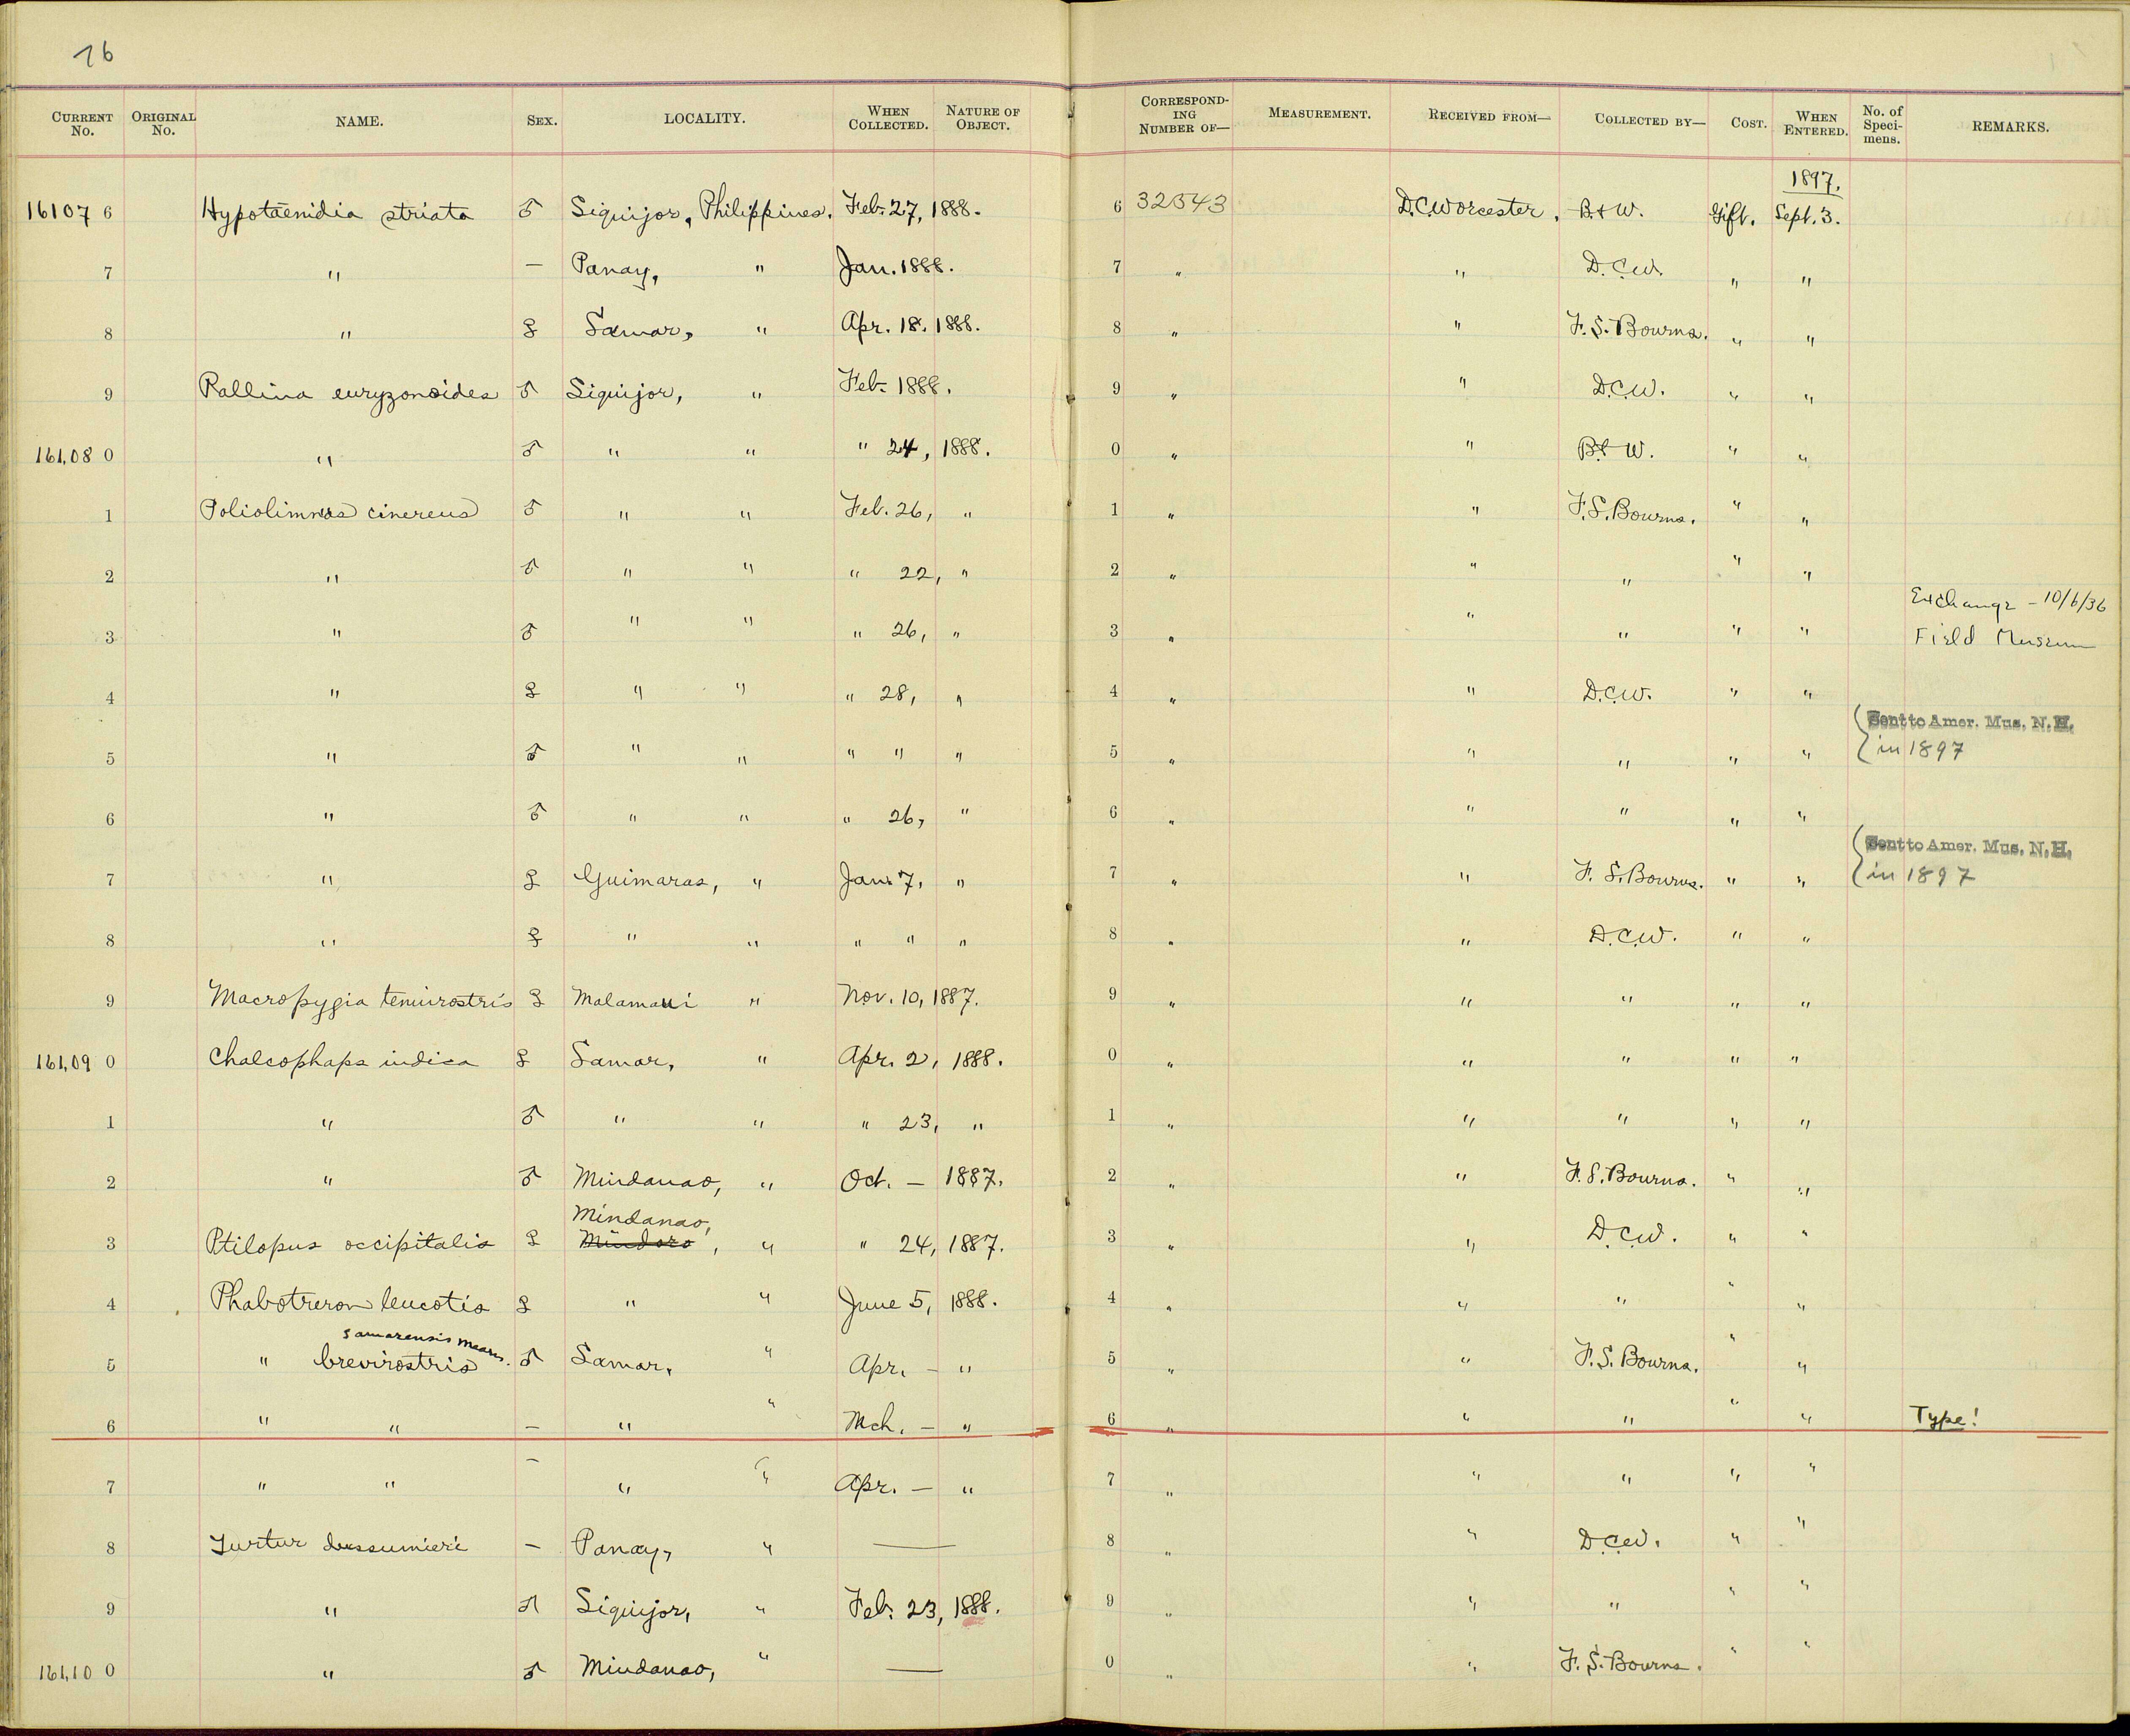 16
CURRENT No. ORIGINAL No. NAME. SEX. LOCALITY. WHEN COLLECTED. NATURE OF OBJECT. CORRESPONDING NUMBER OF— MEASUREMENT. RECEIVED FROM— COLLECTED BY— COST. WHEN ENTERED. No. of Specimens. REMARKS.
1897.
16107 6 Hypotaenidia striata ♂ Siquijor, Philippines. Feb. 27, 1888. 6 32543 D.C. Worcester. B. & W. Gift. Sept. 3.
7 " — Panay, " Jan. 1888. 7 " " D.C.W. " "
8 " ♀ Samar, " Apr. 18, 1888. 8 " " F. S. Bourns. " "
9 Rallina euryzonoides ♂ Siquijor, " Feb. 1888. 9 " " D.C.W. " "
161,08 0 " ♂ " " " 24, 1888. 0 " " B. & W. " "
1 Poliolimnas cinereus ♂ " " Feb. 26, " 1 " " F.S. Bourns. " "
2 " ♂ " " " 22, " 2 " " " " "
Exchange – 10/6/36
3 " ♂ " " " 26, " 3 " " " " " Field Museum
4 " ♀ " " " 28, " 4 " " D.C.W. " "
Sent to Amer. Mus. N.H.
5 " ♂ " " " " " 5 " " " " " in 1897
6 " ♂ " " " 26, " 6 " " " " "
Sent to Amer. Mus. N.H.
7 " ♀ Guimaras, " Jan. 7, " 7 " " F. S. Bourns. " " in 1897
8 " ♀ " " " " " 8 " " D.C.W. " "
9 Macropygia tenuirostris ♀ Malamaui " Nov. 10, 1887. 9 " " " " "
161,09 0 Chalcophaps indica ♀ Samar, " Apr. 2, 1888. 0 " " " " "
1 " ♂ " " " 23, " 1 " " " " "
2 " ♂ Mindanao, " Oct. — 1887. 2 " " F. S. Bourns. " "
Mindanao,
3 Ptilopus occipitalis ♀ Mindoro, " " 24, 1887. 3 " " D.C.W. " "
4 Phabotreron leucotis ♀ " " June 5, 1888. 4 " " " " "
samarensis Mearns.
5 " brevirostris ♂ Samar, " Apr. — " 5 " " F. S. Bourns. " "
6 " " — " " Mch. — " 6 " " " " " Type!
7 " " — " " Apr. — " 7 " " " " "
8 Turtur dussumieri — Panay, " — 8 " " D.C.W. " "
9 " ♂ Siquijor, " Feb. 23, 1888. 9 " " " " "
161,10 0 " ♂ Mindanao, " — 0 " " F. S. Bourns. " "